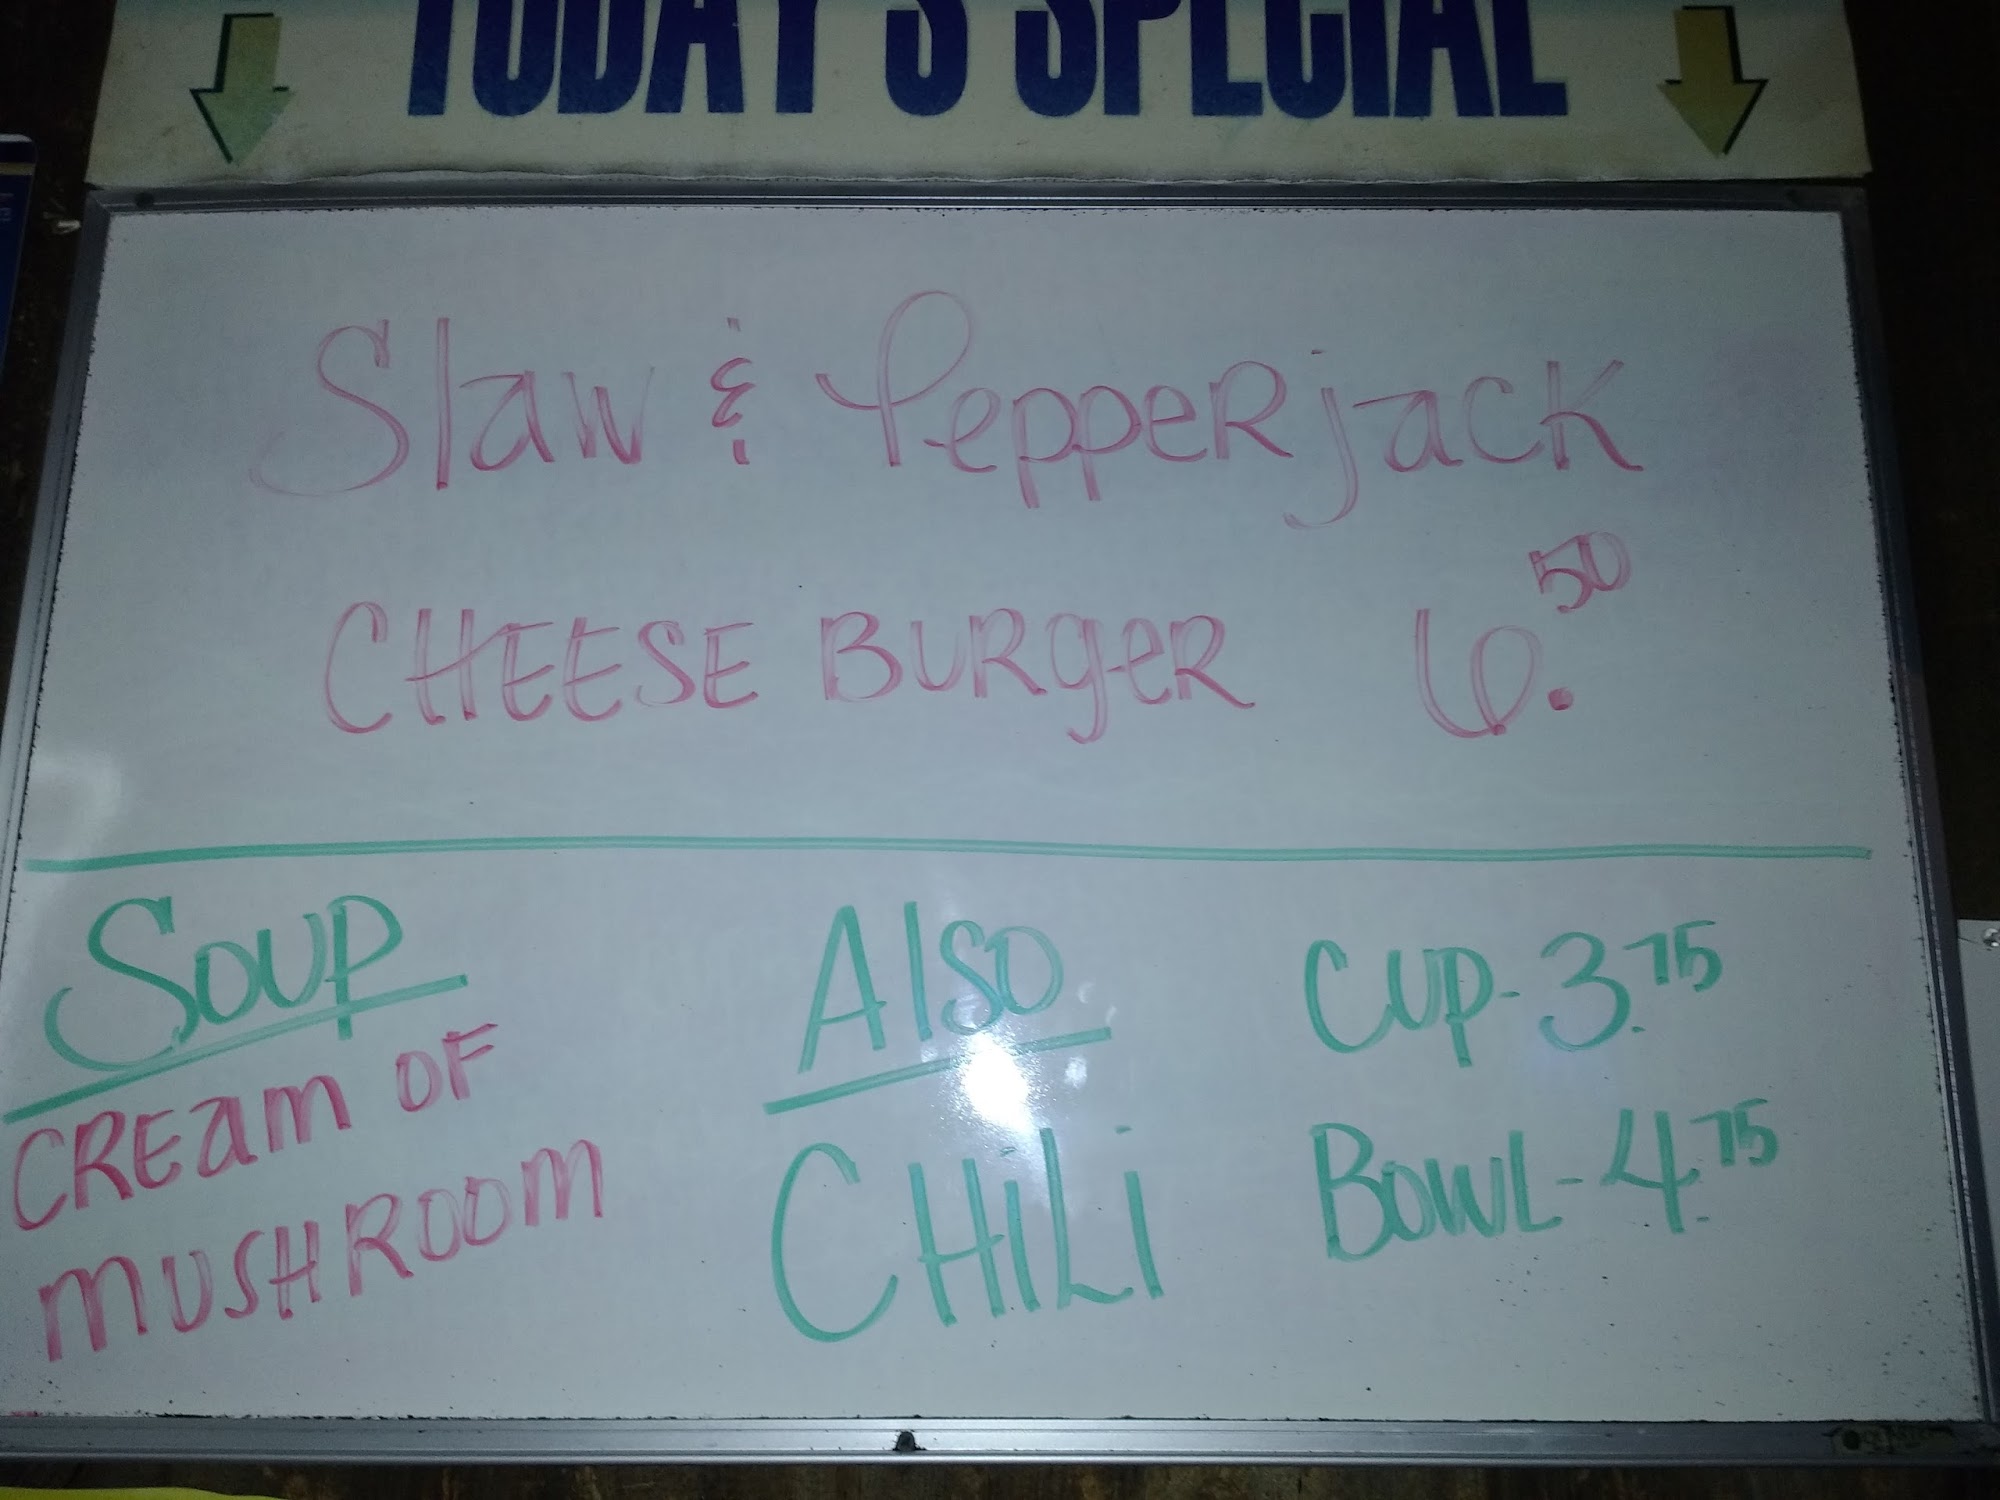 TODAY'S SPECIAL
Slaw & Pepperjack
CHEESE BURGER 6.50
SOUP
CREAM OF
MUSHROOM
Also
CHiLi
CUP - 3.75
BOWL - 4.75